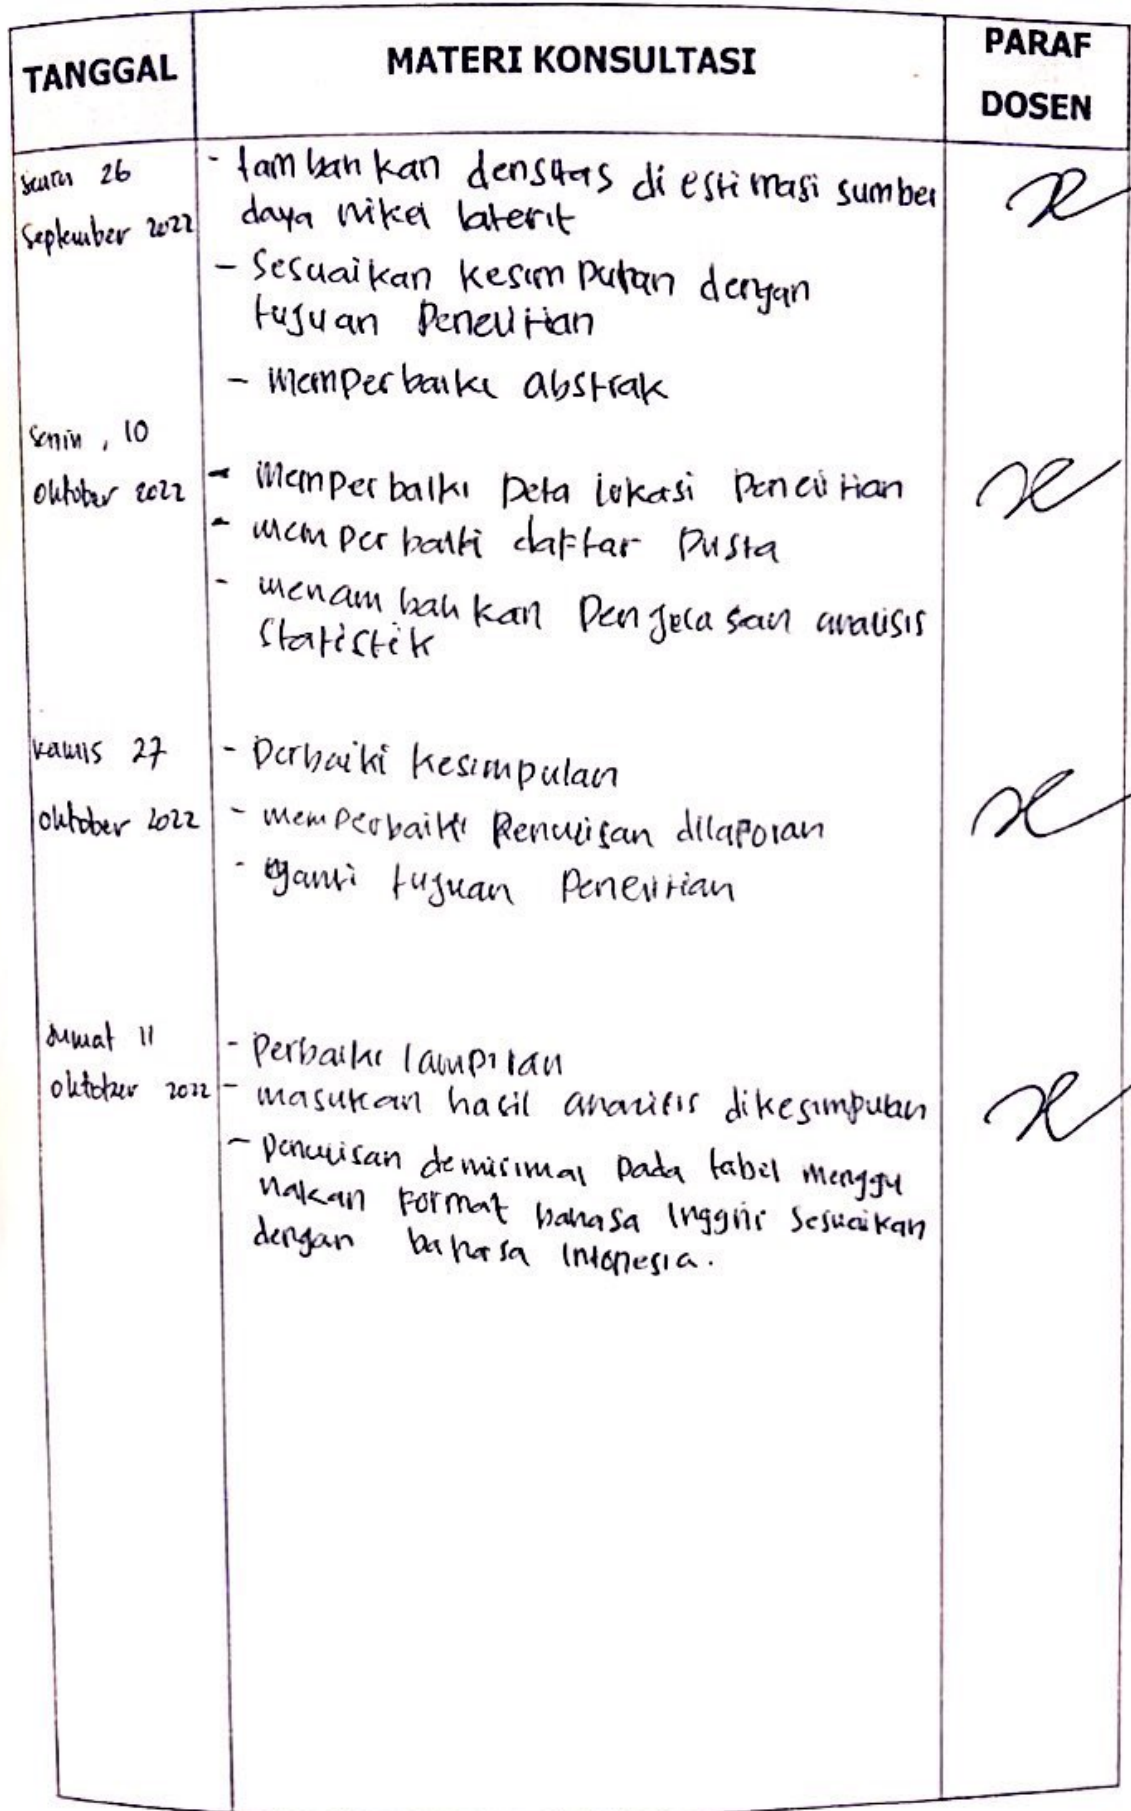 TANGGAL
MATERI KONSULTASI
PARAF
DOSEN
Senin 26
September 2022
- tambahkan densitas di estimasi sumber
daya nikel laterit
- Sesuaikan kesimpulan dengan
tujuan Penelitian
- Memperbaiki abstrak
Senin, 10
Oktober 2022
- Memperbaiki peta lokasi Penelitian
- memperbaiki daftar Pusta
- menambahkan Penjelasan analisis
Statistik
Kamis 27
Oktober 2022
- Perbaiki kesimpulan
- memperbaiki Penulisan dilaporan
- ganti tujuan Penelitian
Jumat 11
Oktober 2022
- Perbaiki lampiran
- masukan hasil analisis dikesimpulan
- Penulisan demisimal Pada tabel menggu
nakan Format bahasa Inggris Sesuaikan
dengan bahasa Intonesia.